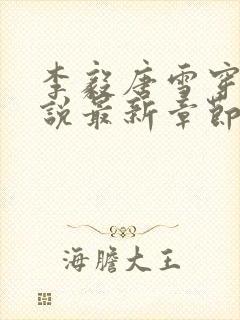 李毅唐雪穿
說最新章節
海膽大王